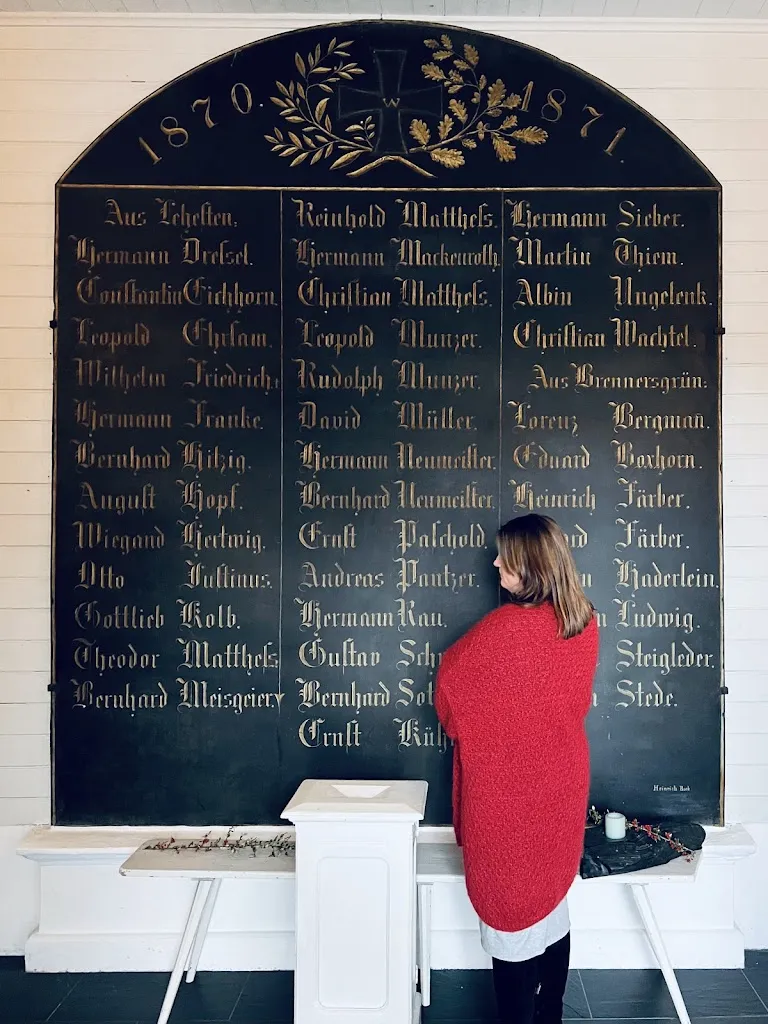 1870. 1871.
W
Aus Lehesten:
Hermann Dressel.
Constantin Eichhorn.
Leopold Ehrsam.
Wilhelm Friedrich.
Hermann Franke.
Bernhard Hitzig.
August Hopf.
Wiegand Hertwig.
Otto Justinus.
Gottlieb Kolb.
Theodor Matthess.
Bernhard Meisgeier.
Reinhold Matthess.
Hermann Mackenroth.
Christian Matthess.
Leopold Munzer.
Rudolph Munzer.
David Müller.
Hermann Neumeister.
Bernhard Neumeister.
Ernst Paschold.
Andreas Pantzer.
Hermann Rau.
Gustav
Bernhard
Ernst
Hermann Sieber.
Martin Thiem.
Albin Ungelenk.
Christian Wachtel.
Aus Brennersgrün:
Lorenz Bergman̄.
Eduard Boxhorn.
Heinrich Färber.
Färber.
Haderlein.
Ludwig.
Steigleder.
Stede.
Heinrich